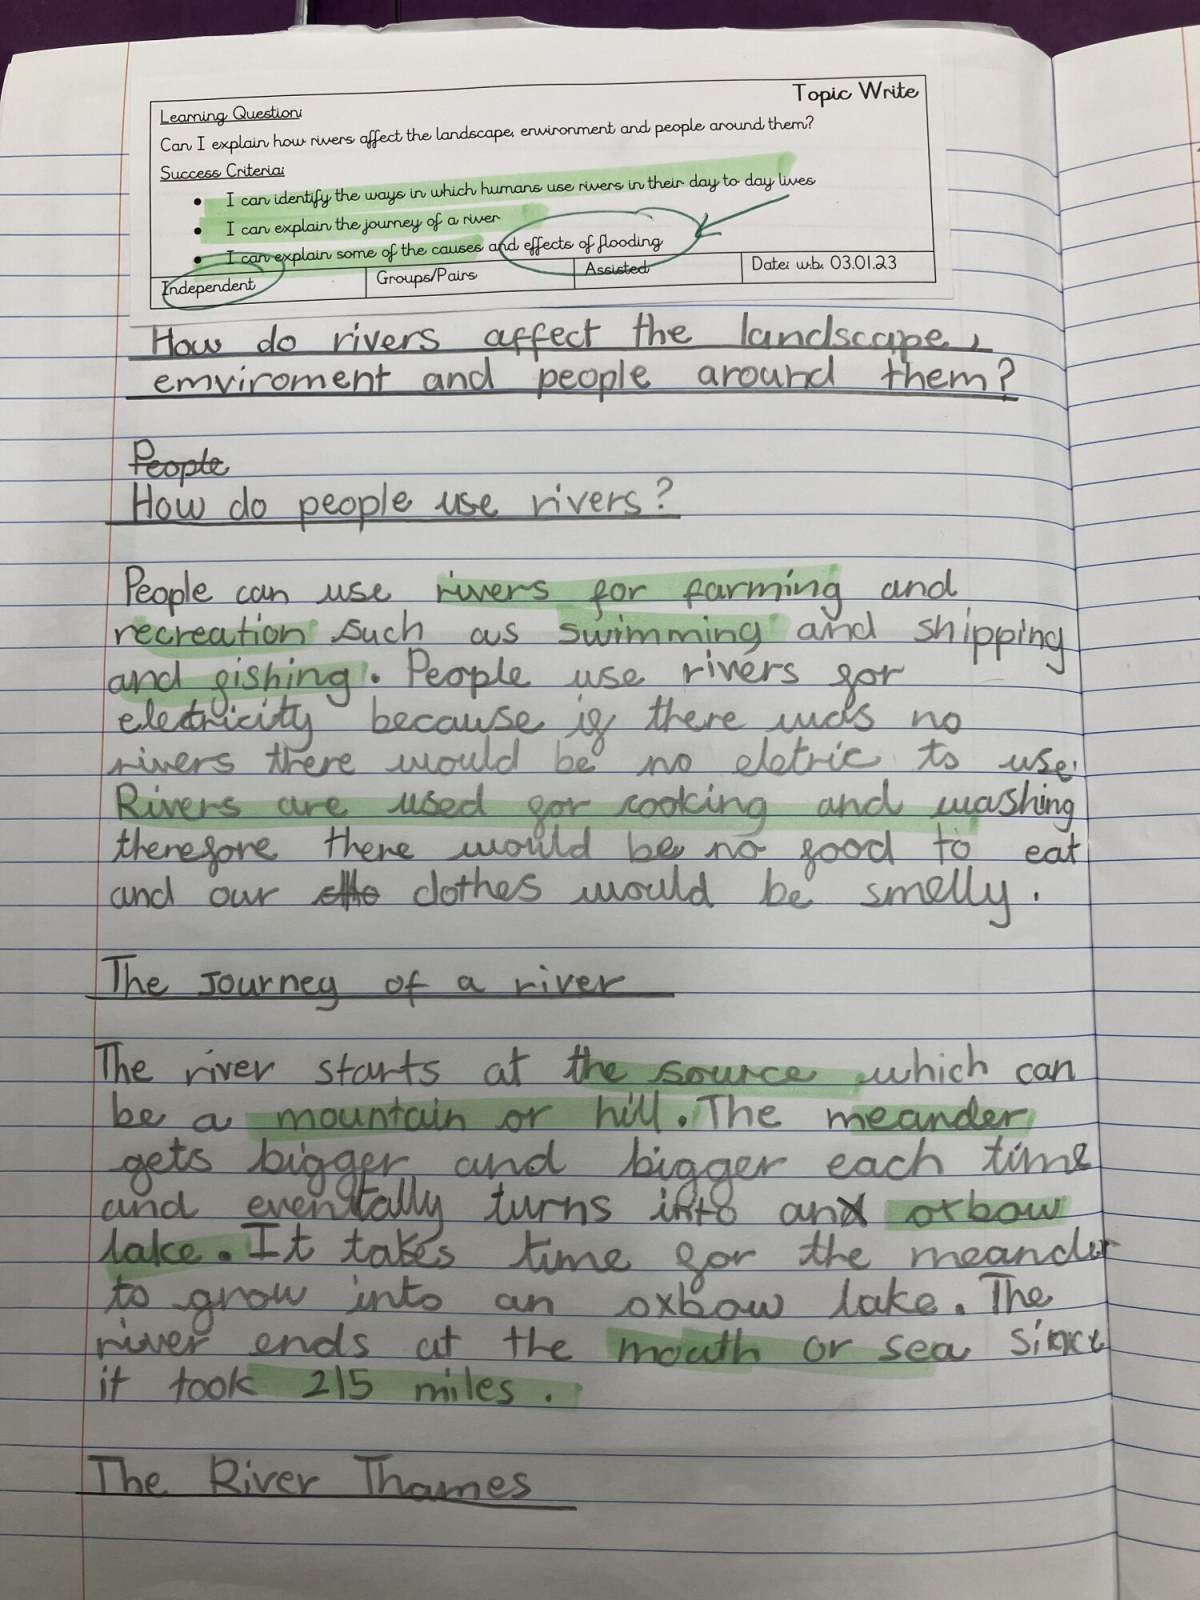 Topic Write
Learning Question:
Can I explain how rivers affect the landscape, environment and people around them?
Success Criteria:
• I can identify the ways in which humans use rivers in their day to day lives
• I can explain the journey of a river
• I can explain some of the causes and effects of flooding
Independent Groups/Pairs Assisted Date: w.b. 03.01.23
How do rivers affect the landscape,
emviroment and people around them?
People
How do people use rivers?
People can use rivers for farming and
recreation such as swimming and shipping
and fishing. People use rivers for
electricity because if there was no
rivers there would be no eletric to use.
Rivers are used for cooking and washing
therefore there would be no food to eat
and our clothes would be smelly.
The Journey of a river
The river starts at the source which can
be a mountain or hill. The meander
gets bigger and bigger each time
and eventally turns into an oxbow
lake. It takes time for the meander
to grow into an oxbow lake. The
river ends at the mouth or sea since
it took 215 miles.
The River Thames